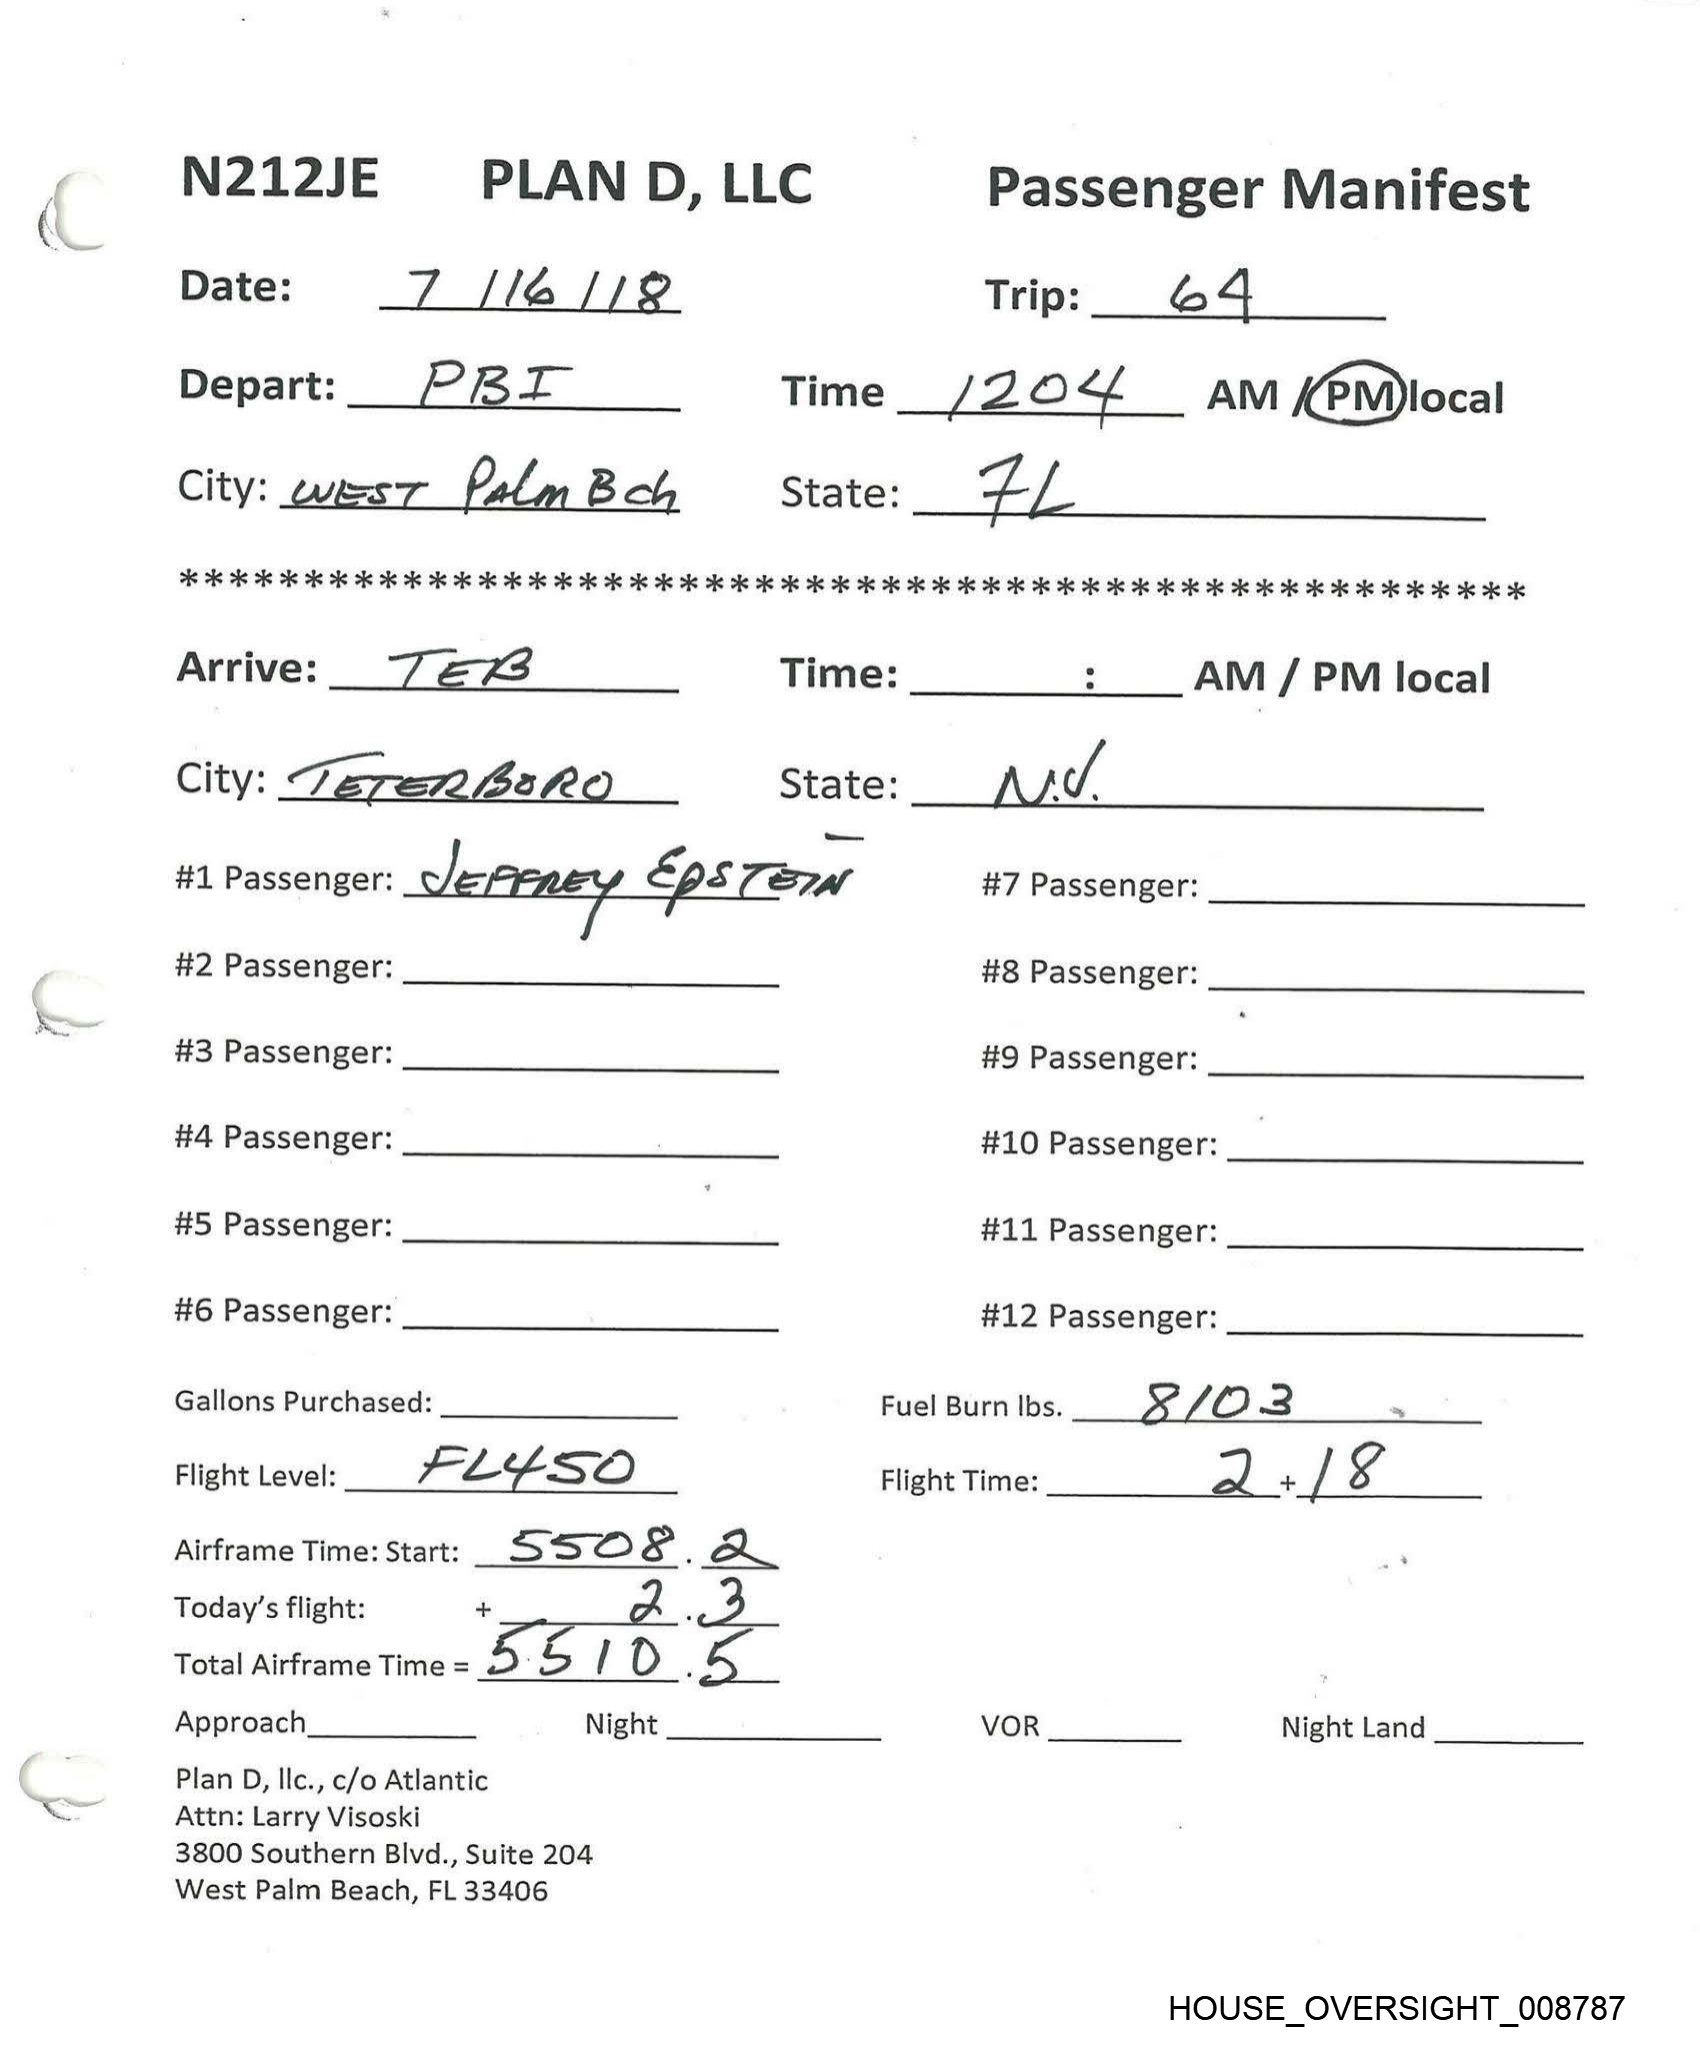 N212JE PLAN D, LLC Passenger Manifest
Date: 7 /16 /18 Trip: 64
Depart: PBI Time 1204 AM / PM local
City: WEST Palm Bch State: FL
******************************************************
Arrive: TEB Time: : AM / PM local
City: TETERBORO State: N.J.
#1 Passenger: JEFFREY EPSTEIN #7 Passenger:
#2 Passenger: #8 Passenger:
#3 Passenger: #9 Passenger:
#4 Passenger: #10 Passenger:
#5 Passenger: #11 Passenger:
#6 Passenger: #12 Passenger:
Gallons Purchased: Fuel Burn lbs. 8103
Flight Level: FL450 Flight Time: 2 + 18
Airframe Time: Start: 5508 . 2
Today's flight: + 2 . 3
Total Airframe Time = 5510 . 5
Approach Night VOR Night Land
Plan D, llc., c/o Atlantic
Attn: Larry Visoski
3800 Southern Blvd., Suite 204
West Palm Beach, FL 33406
HOUSE_OVERSIGHT_008787